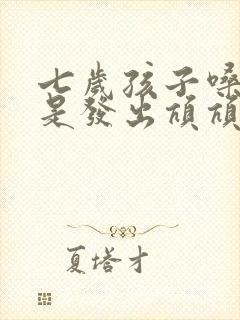 七歲孩子嗓
是發出頑頑
夏塔才